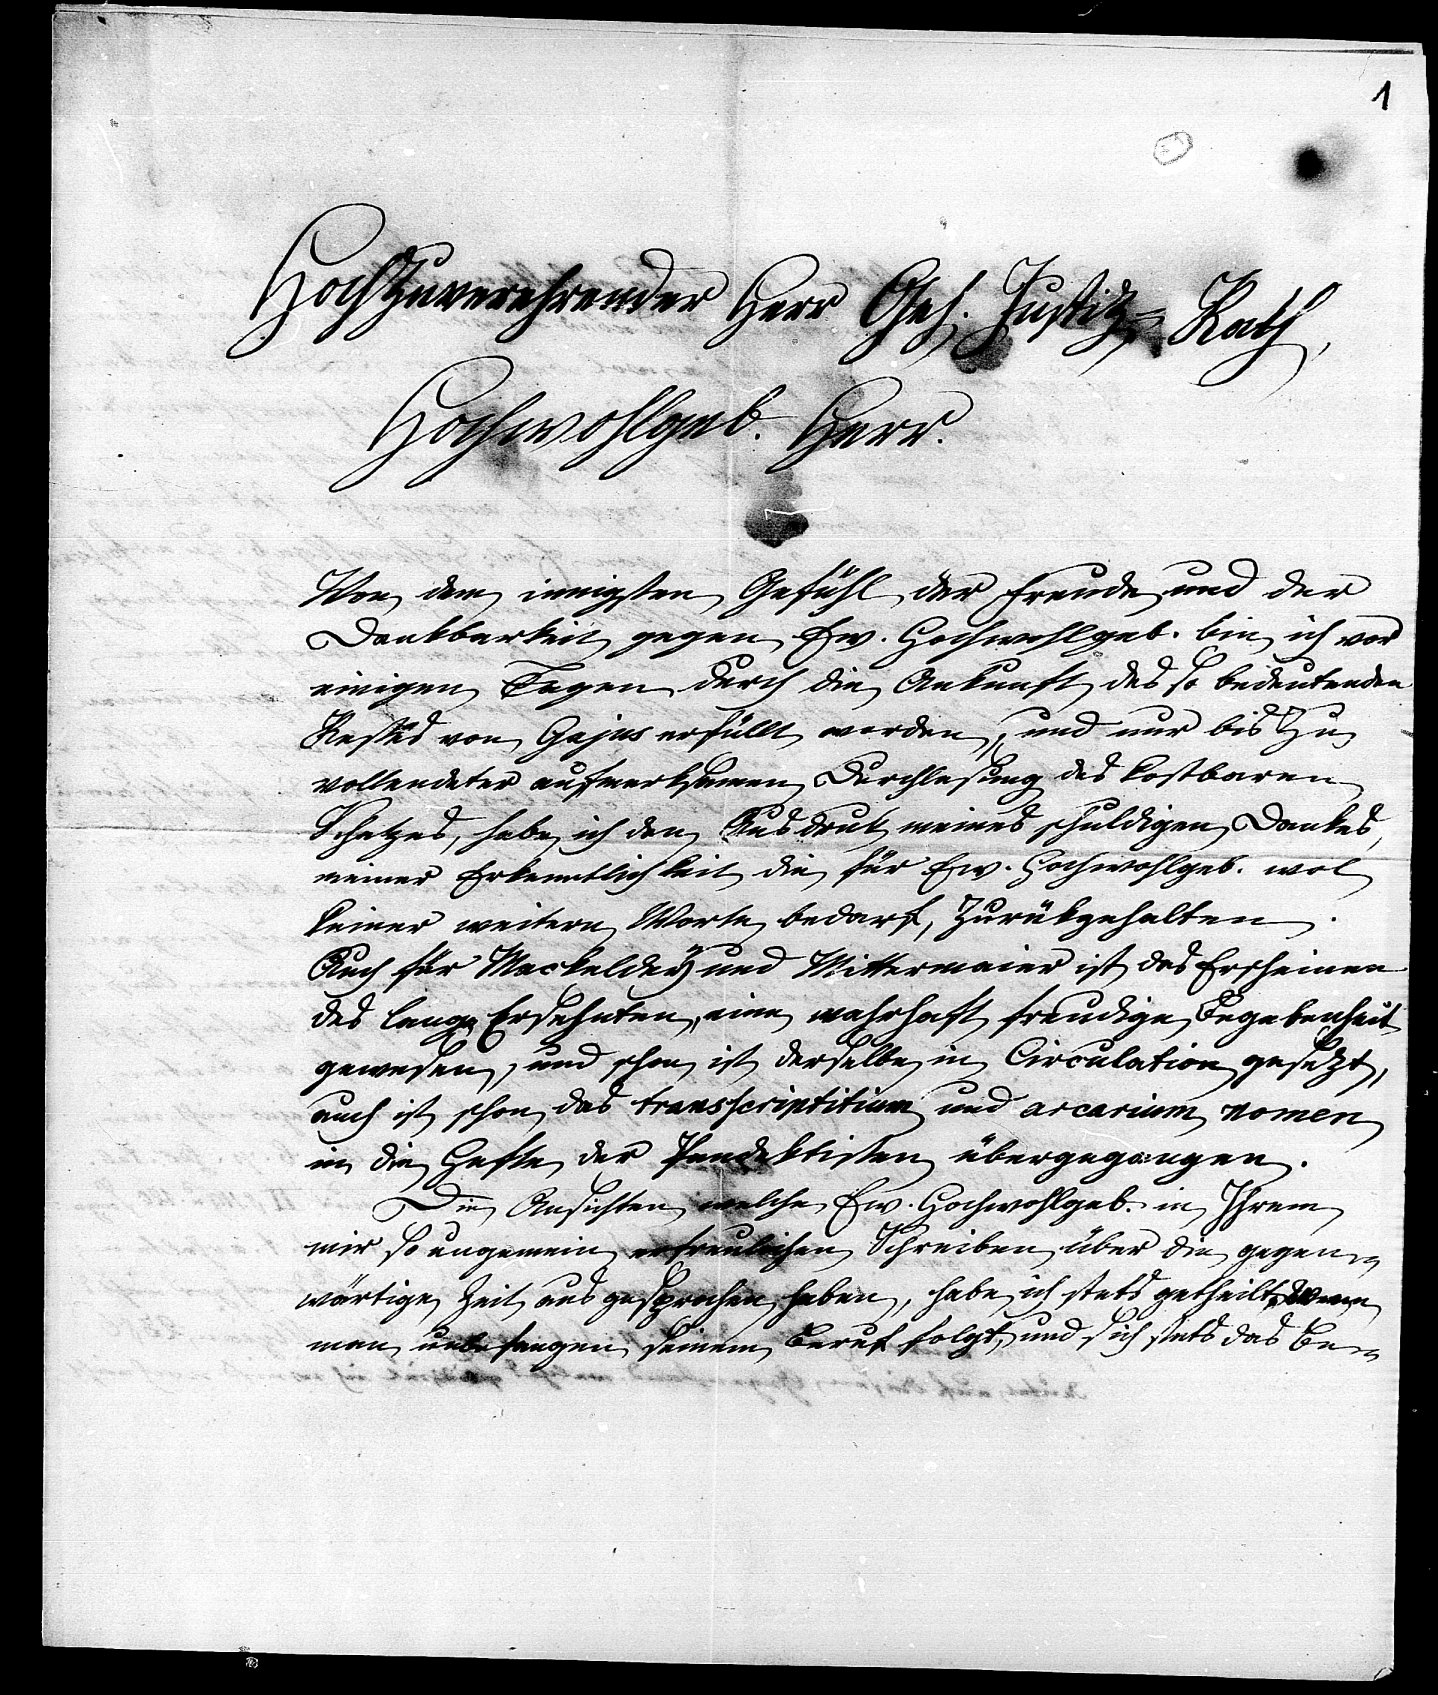 1
Hochzuverehrender Herr Geh. Justiz-Rath,
Hochwohlgeb. Herr.
Von dem innigsten Gefühl der Freude und der
Dankbarkeit gegen Ew. Hochwohlgeb. bin ich vor
einigen Tagen durch die Ankunft des so bedeutenden
Restes von Gajus erfüllt worden, und nur bis zu
vollendeter aufmerksamen Durchlesung des kostbaren
Schatzes, habe ich den Ausdruk meines schuldigen Dankes,
meiner Erkenntlichkeit die für Ew. Hochwohlgeb. wol
keiner weitern Worte bedarf, zurükgehalten.
Auch für Mackeldey und Mittermaier ist das Erscheinen
des lang Ersehnten, eine wahrhaft freudige Begebenheit
gewesen, und schon ist derselbe in Circulation gesezt,
auch ist schon das transscriptitium und arcarium nomen
in die Hefte der Pandektisten übergegangen.
Die Ansichten welche Ew. Hochwohlgeb. in Ihrem
mir so ungemein erfreulichen Schreiben über die gegen-
wärtige Zeit ausgesprochen haben, habe ich stets getheilt. Wenn
man unbefangen seinem Beruf folgt, und sich stets das Be-